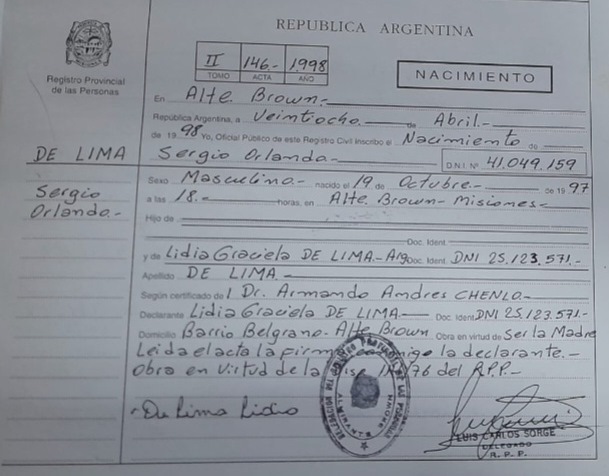 REPUBLICA ARGENTINA
Registro Provincial
de las Personas
II 146.- 1998
TOMO ACTA AÑO
NACIMIENTO
En Alte. Brown.-
República Argentina, a Veintiocho de Abril.-
de 1998 Yo, Oficial Público de este Registro Civil inscribo el Nacimiento de
DE LIMA
Sergio Orlando.-
D.N.I. Nº 41.049.159
Sergio
Orlando.-
Sexo Masculino.- nacido el 19 de Octubre.- de 1997
a las 18.- horas, en Alte. Brown- Misiones-
Hijo de
Doc. Ident.
y de Lidia Graciela DE LIMA.-Arg Doc. Ident. DNI 25.123.571.-
Apellido DE LIMA.-
Según certificado del Dr. Armando Andres CHENLO.-
Declarante Lidia Graciela DE LIMA.- Doc. Ident DNI 25.123.571-
Domicilio Barrio Belgrano- Alte Brown Obra en virtud de Ser la Madre
Leida el acta la firma conmigo la declarante.-
Obra en Virtud de la /76 del R.P.P.-
De Lima Lidia
LUIS CARLOS SORGE
DELEGADO
R. P. P.